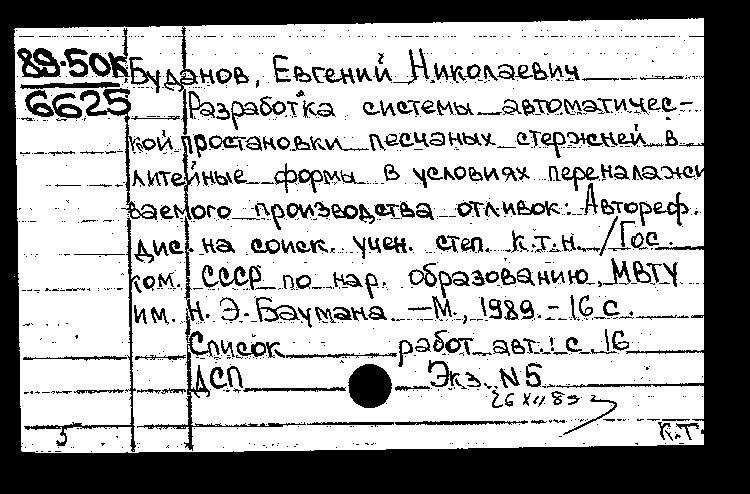 89-50К
6625
Буданов, Евгений Николаевич
Разработка системы автоматичес-
кой простановки песчаных стержней в
литейные формы в условиях переналажи
ваемого производства отливок: Автореф.
дис. на соиск. учен. степ. к.т.н. / Гос.
ком. СССР по нар. образованию, МВТУ
им. Н. Э. Баумана. —М., 1989. - 16 с.
Список работ авт.: с. 16
ДСП Экз. N5
26 XII 89
5 К.Т.